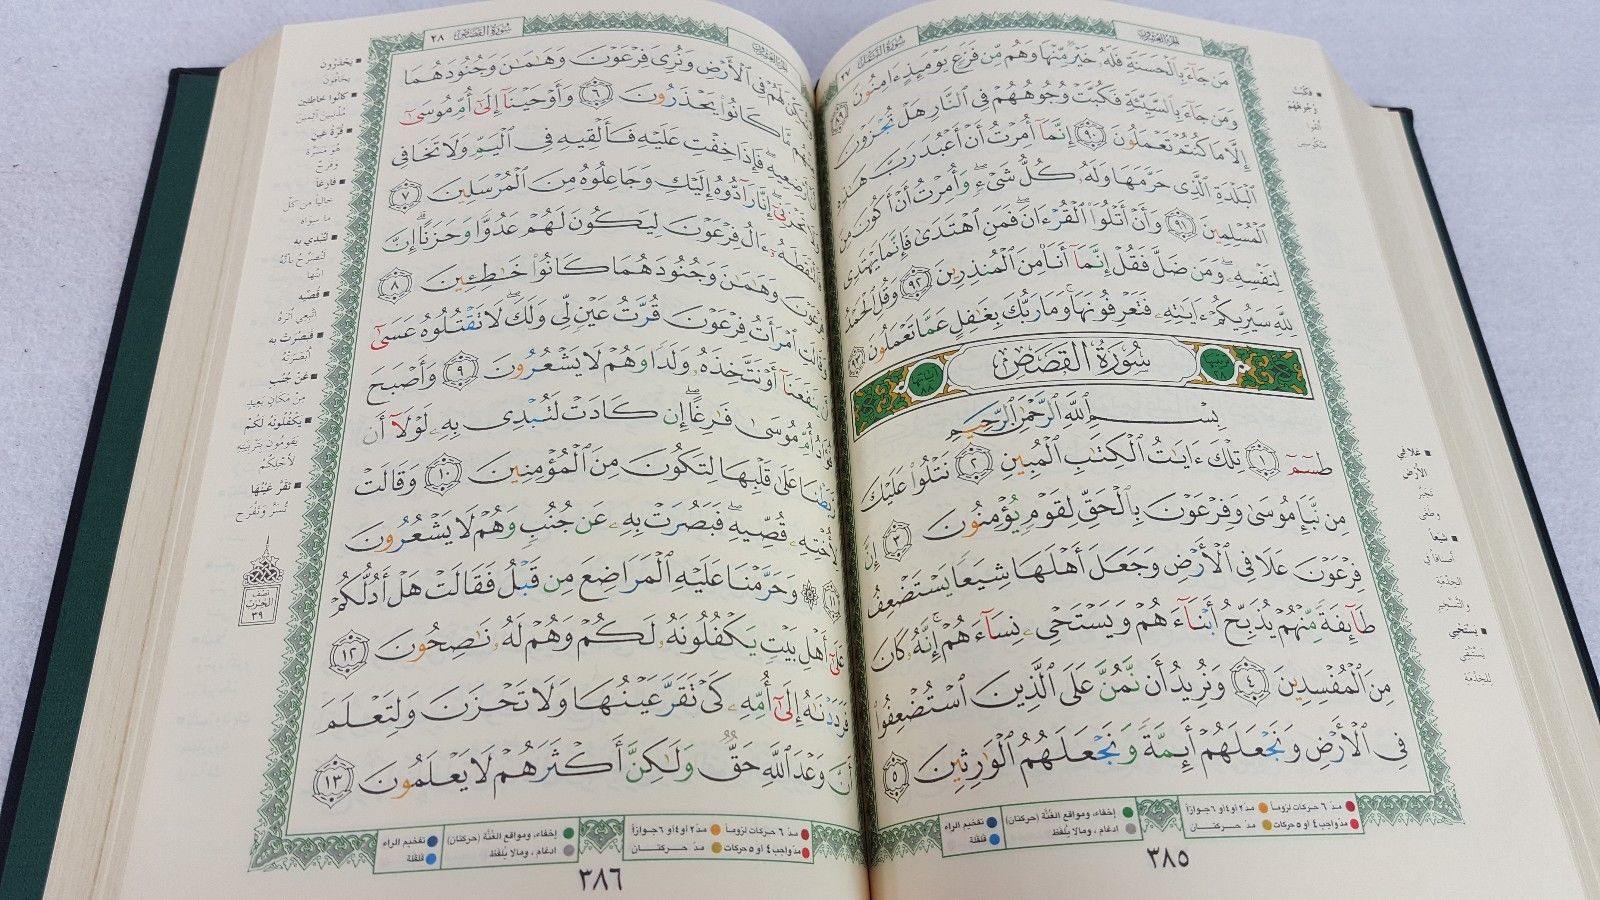 سُورَةُ النَّمْلِ ٢٧
الجزء العشرون
مَن جَآءَ بِالْحَسَنَةِ فَلَهُۥ خَيْرٌ مِّنْهَا وَهُم مِّن فَزَعٍ يَوْمَئِذٍ ءَامِنُونَ ٨٩
وَمَن جَآءَ بِالسَّيِّئَةِ فَكُبَّتْ وُجُوهُهُمْ فِى النَّارِ هَلْ تُجْزَوْنَ
إِلَّا مَا كُنتُمْ تَعْمَلُونَ ٩٠ إِنَّمَآ أُمِرْتُ أَنْ أَعْبُدَ رَبَّ هَٰذِهِ
الْبَلْدَةِ الَّذِى حَرَّمَهَا وَلَهُۥ كُلُّ شَىْءٍ ۖ وَأُمِرْتُ أَنْ أَكُونَ مِنَ
الْمُسْلِمِينَ ٩١ وَأَنْ أَتْلُوَا۟ الْقُرْءَانَ ۖ فَمَنِ اهْتَدَىٰ فَإِنَّمَا يَهْتَدِى
لِنَفْسِهِۦ ۖ وَمَن ضَلَّ فَقُلْ إِنَّمَآ أَنَا۠ مِنَ الْمُنذِرِينَ ٩٢ وَقُلِ الْحَمْدُ
لِلَّهِ سَيُرِيكُمْ ءَايَٰتِهِۦ فَتَعْرِفُونَهَا ۚ وَمَا رَبُّكَ بِغَٰفِلٍ عَمَّا تَعْمَلُونَ ٩٣
سُورَةُ القَصَصِ
بِسْمِ اللَّهِ الرَّحْمَٰنِ الرَّحِيمِ
طسٓمٓ ١ تِلْكَ ءَايَٰتُ الْكِتَٰبِ الْمُبِينِ ٢ نَتْلُوا۟ عَلَيْكَ
مِن نَّبَإِ مُوسَىٰ وَفِرْعَوْنَ بِالْحَقِّ لِقَوْمٍ يُؤْمِنُونَ ٣ إِنَّ
فِرْعَوْنَ عَلَا فِى الْأَرْضِ وَجَعَلَ أَهْلَهَا شِيَعًا يَسْتَضْعِفُ
طَآئِفَةً مِّنْهُمْ يُذَبِّحُ أَبْنَآءَهُمْ وَيَسْتَحْىِۦ نِسَآءَهُمْ ۚ إِنَّهُۥ كَانَ
مِنَ الْمُفْسِدِينَ ٤ وَنُرِيدُ أَن نَّمُنَّ عَلَى الَّذِينَ اسْتُضْعِفُوا۟
فِى الْأَرْضِ وَنَجْعَلَهُمْ أَئِمَّةً وَنَجْعَلَهُمُ الْوَٰرِثِينَ ٥
مدّ ٦ حركات لزوماً
مدّ ٢ او ٤ او ٦ جوازاً
إخفاء، ومواقع الغُنَّة (حركتان)
تفخيم الراء
مدّ واجب ٤ او ٥ حركات
مدّ حركتان
ادغام ، ومالا يُلفَظ
قلقلة
٣٨٥
الجزء العشرون
سُورَةُ القَصَصِ ٢٨
لَهُمْ فِى الْأَرْضِ وَنُرِىَ فِرْعَوْنَ وَهَٰمَٰنَ وَجُنُودَهُمَا
مَّا كَانُوا۟ يَحْذَرُونَ ٦ وَأَوْحَيْنَآ إِلَىٰٓ أُمِّ مُوسَىٰٓ
أَرْضِعِيهِ ۖ فَإِذَا خِفْتِ عَلَيْهِ فَأَلْقِيهِ فِى الْيَمِّ وَلَا تَخَافِى
تَحْزَنِىٓ ۖ إِنَّا رَآدُّوهُ إِلَيْكِ وَجَاعِلُوهُ مِنَ الْمُرْسَلِينَ ٧
ءَالُ فِرْعَوْنَ لِيَكُونَ لَهُمْ عَدُوًّا وَحَزَنًا ۗ إِنَّ
وَهَٰمَٰنَ وَجُنُودَهُمَا كَانُوا۟ خَٰطِـِٔينَ ٨
امْرَأَتُ فِرْعَوْنَ قُرَّتُ عَيْنٍ لِّى وَلَكَ ۖ لَا تَقْتُلُوهُ عَسَىٰٓ
يَنفَعَنَآ أَوْ نَتَّخِذَهُۥ وَلَدًا وَهُمْ لَا يَشْعُرُونَ ٩ وَأَصْبَحَ
أُمِّ مُوسَىٰ فَٰرِغًا ۖ إِن كَادَتْ لَتُبْدِى بِهِۦ لَوْلَآ أَن
عَلَىٰ قَلْبِهَا لِتَكُونَ مِنَ الْمُؤْمِنِينَ ١٠ وَقَالَتْ
لِأُخْتِهِۦ قُصِّيهِ ۖ فَبَصُرَتْ بِهِۦ عَن جُنُبٍ وَهُمْ لَا يَشْعُرُونَ
١١ وَحَرَّمْنَا عَلَيْهِ الْمَرَاضِعَ مِن قَبْلُ فَقَالَتْ هَلْ أَدُلُّكُمْ
عَلَىٰٓ أَهْلِ بَيْتٍ يَكْفُلُونَهُۥ لَكُمْ وَهُمْ لَهُۥ نَٰصِحُونَ ١٢
فَرَدَدْنَٰهُ إِلَىٰٓ أُمِّهِۦ كَىْ تَقَرَّ عَيْنُهَا وَلَا تَحْزَنَ وَلِتَعْلَمَ
أَنَّ وَعْدَ اللَّهِ حَقٌّ وَلَٰكِنَّ أَكْثَرَهُمْ لَا يَعْلَمُونَ ١٣
يَحْذَرُونَ
يخافون
كانُوا خاطئين
قُرَّةُ عَينٍ
فارغا
خالياً من كلّ
ما سواه
لَتُبْدِي به
قُصِّيه
فَبَصُرَتْ به
أبْصَرَتْهُ
عَنْ جُنُبٍ
مِنْ مَكانٍ بعيدٍ
يَكْفُلُونَهُ لَكُمْ
يقومُون بتربيته
لأجلِكُمْ
تَقَرَّ عَيْنُهَا
تُسَرَّ وَتَفْرَحَ
نصف
الحزب
٣٩
مدّ ٦ حركات لزوماً
مدّ ٢ او ٤ او ٦ جوازاً
إخفاء، ومواقع الغُنَّة (حركتان)
تفخيم الراء
مدّ واجب ٤ او ٥ حركات
مدّ حركتان
ادغام ، ومالا يُلفَظ
قلقلة
٣٨٦